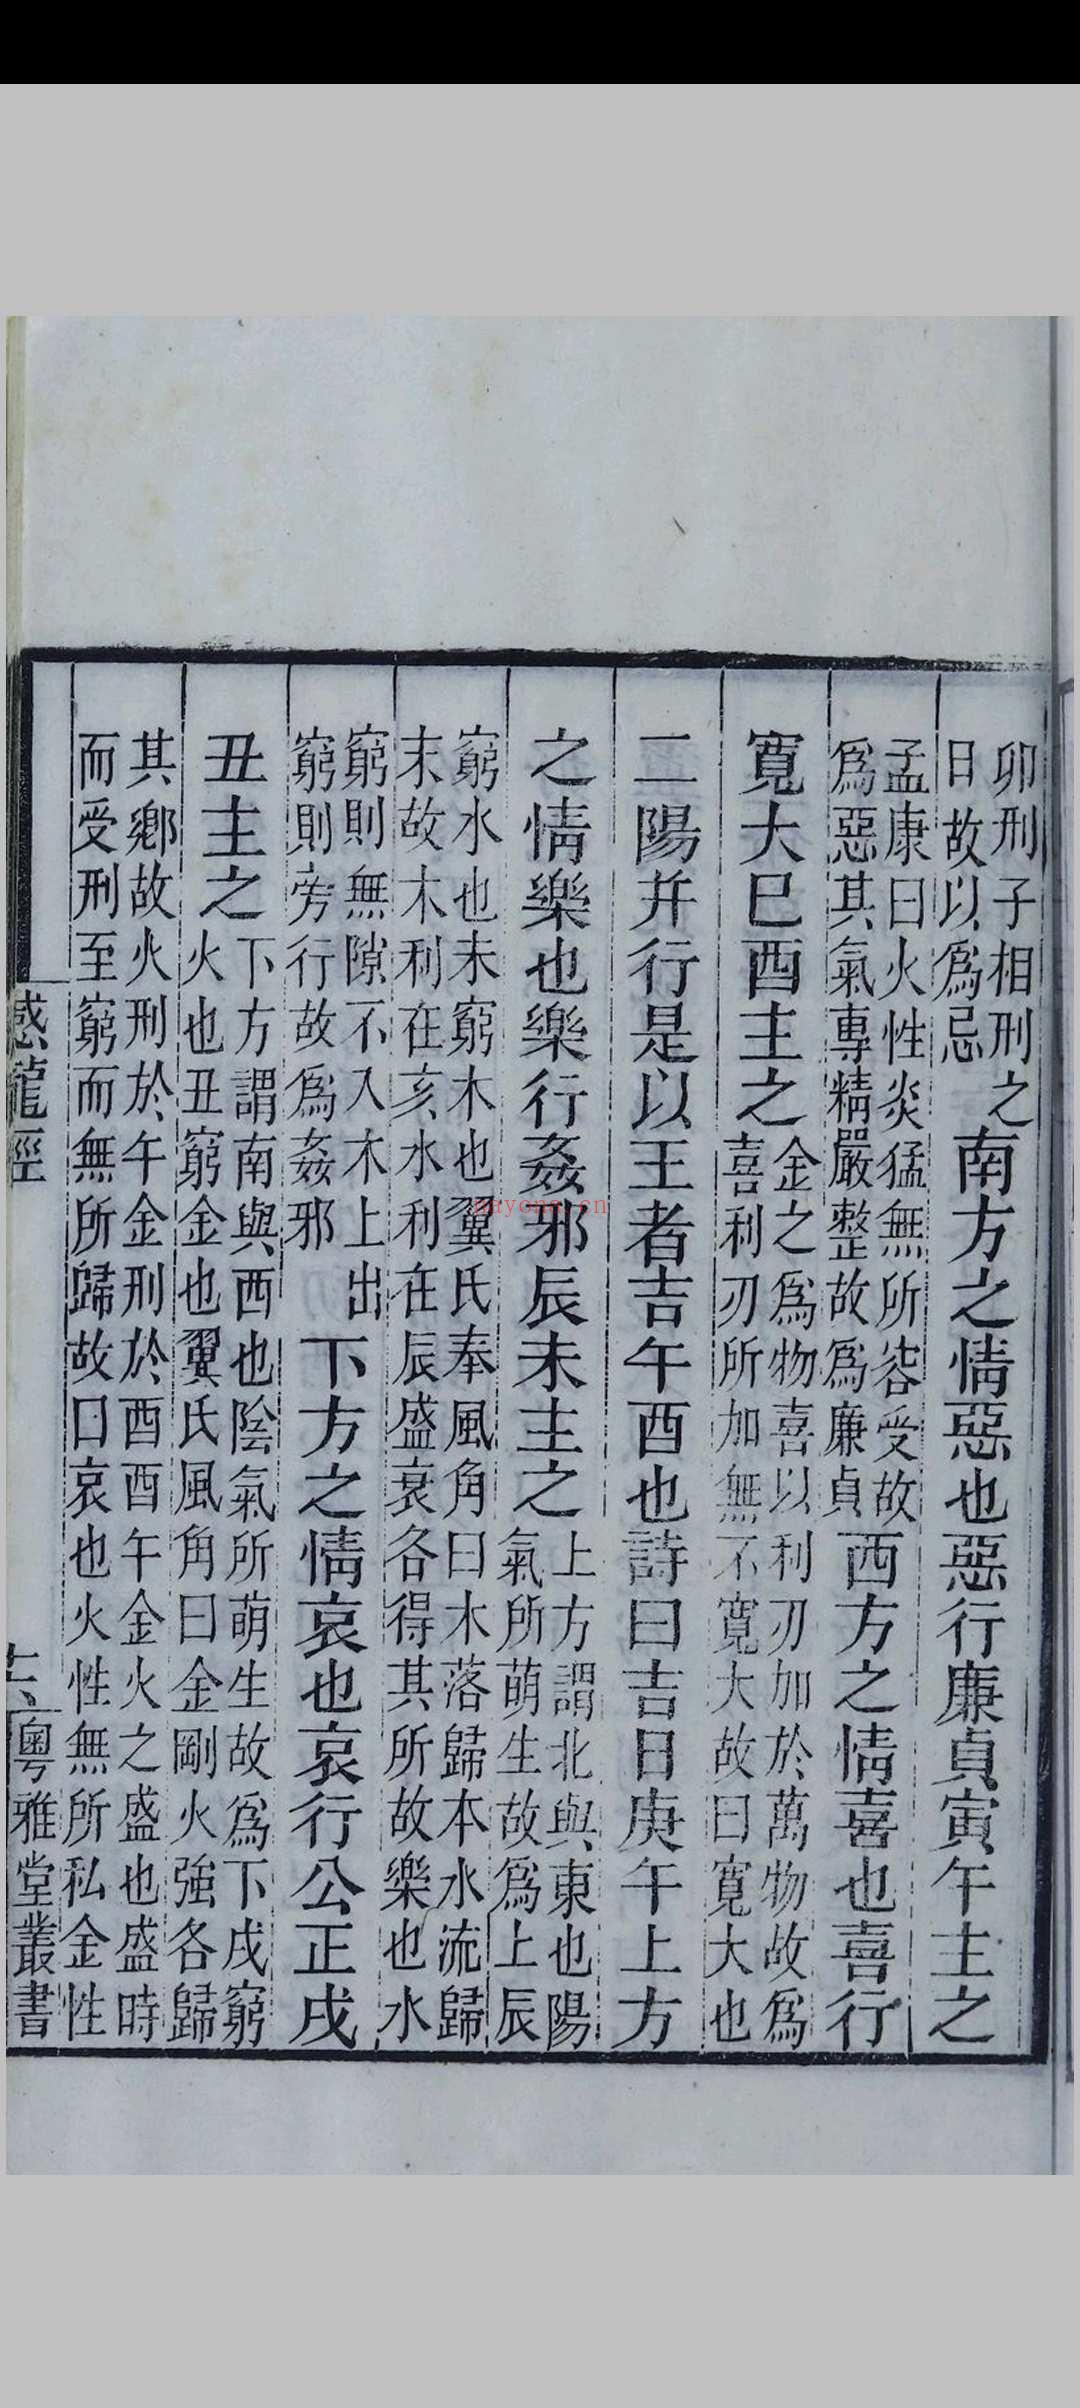 卯刑子相刑之
日故以爲忌
南方之情惡也惡行廉貞寅午主之
孟康曰火性炎猛無所容受故
爲惡其氣專精嚴整故爲廉貞
西方之情喜也喜行
寬大巳酉主之
金之爲物喜以利刃加於萬物故爲
喜利刃所加無不寬大故曰寬大也
二陽并行是以王者吉午酉也詩曰吉日庚午上方
之情樂也樂行姦邪辰未主之
上方謂北與東也陽
氣所萌生故爲上辰
窮水也未窮木也翼氏奉風角曰木落歸本水流歸
末故木利在亥水利在辰盛衰各得其所故樂也水
窮則無隙不入木上出
窮則旁行故爲姦邪
下方之情哀也哀行公正戌
丑主之
下方謂南與西也陰氣所萌生故爲下戌窮
火也丑窮金也翼氏風角曰金剛火強各歸
其鄉故火刑於午金刑於酉酉午金火之盛也盛時
而受刑至窮而無所歸故曰哀也火性無所私金性
撼龍經
六
粵雅堂叢書
nayona.cn